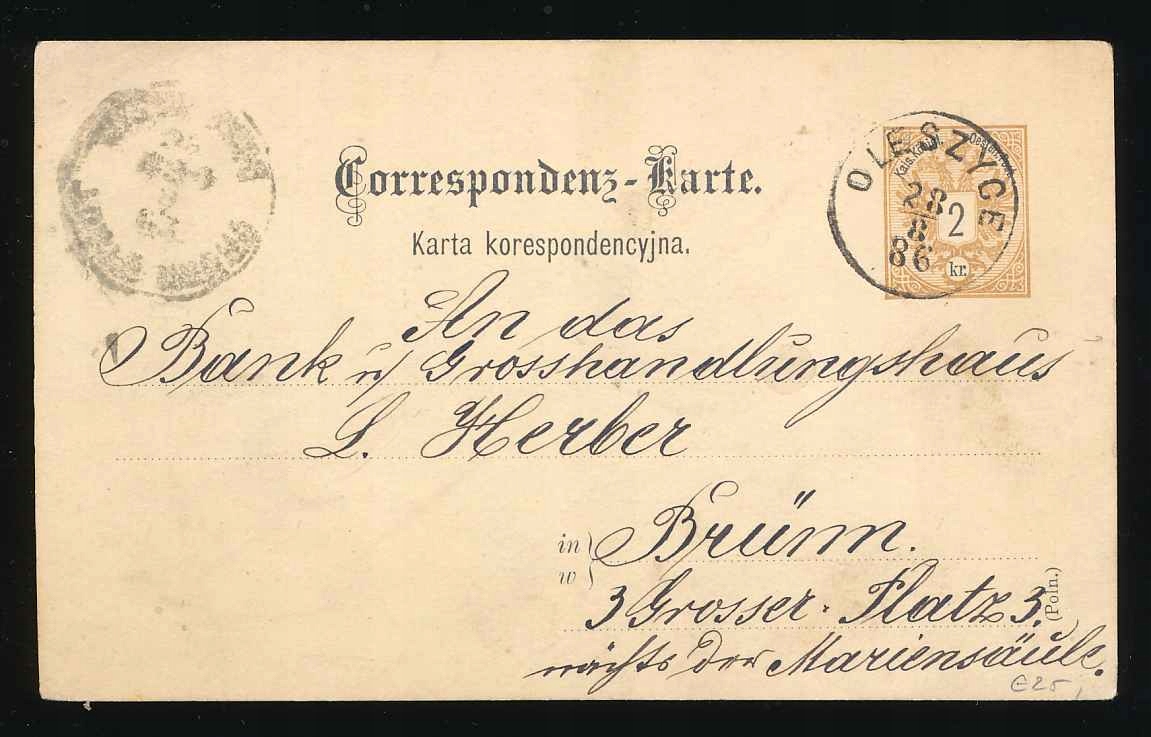 Correspondenz-Karte.
Karta korespondencyjna.
OLESZYCE
28
8
86
2
kr.
An das
Bank u Grosshandlungshaus
L. Herber
in
w
Brünn.
3 Grosser Platz 3.
nächst der Mariensäule.
(Poln.)
€25